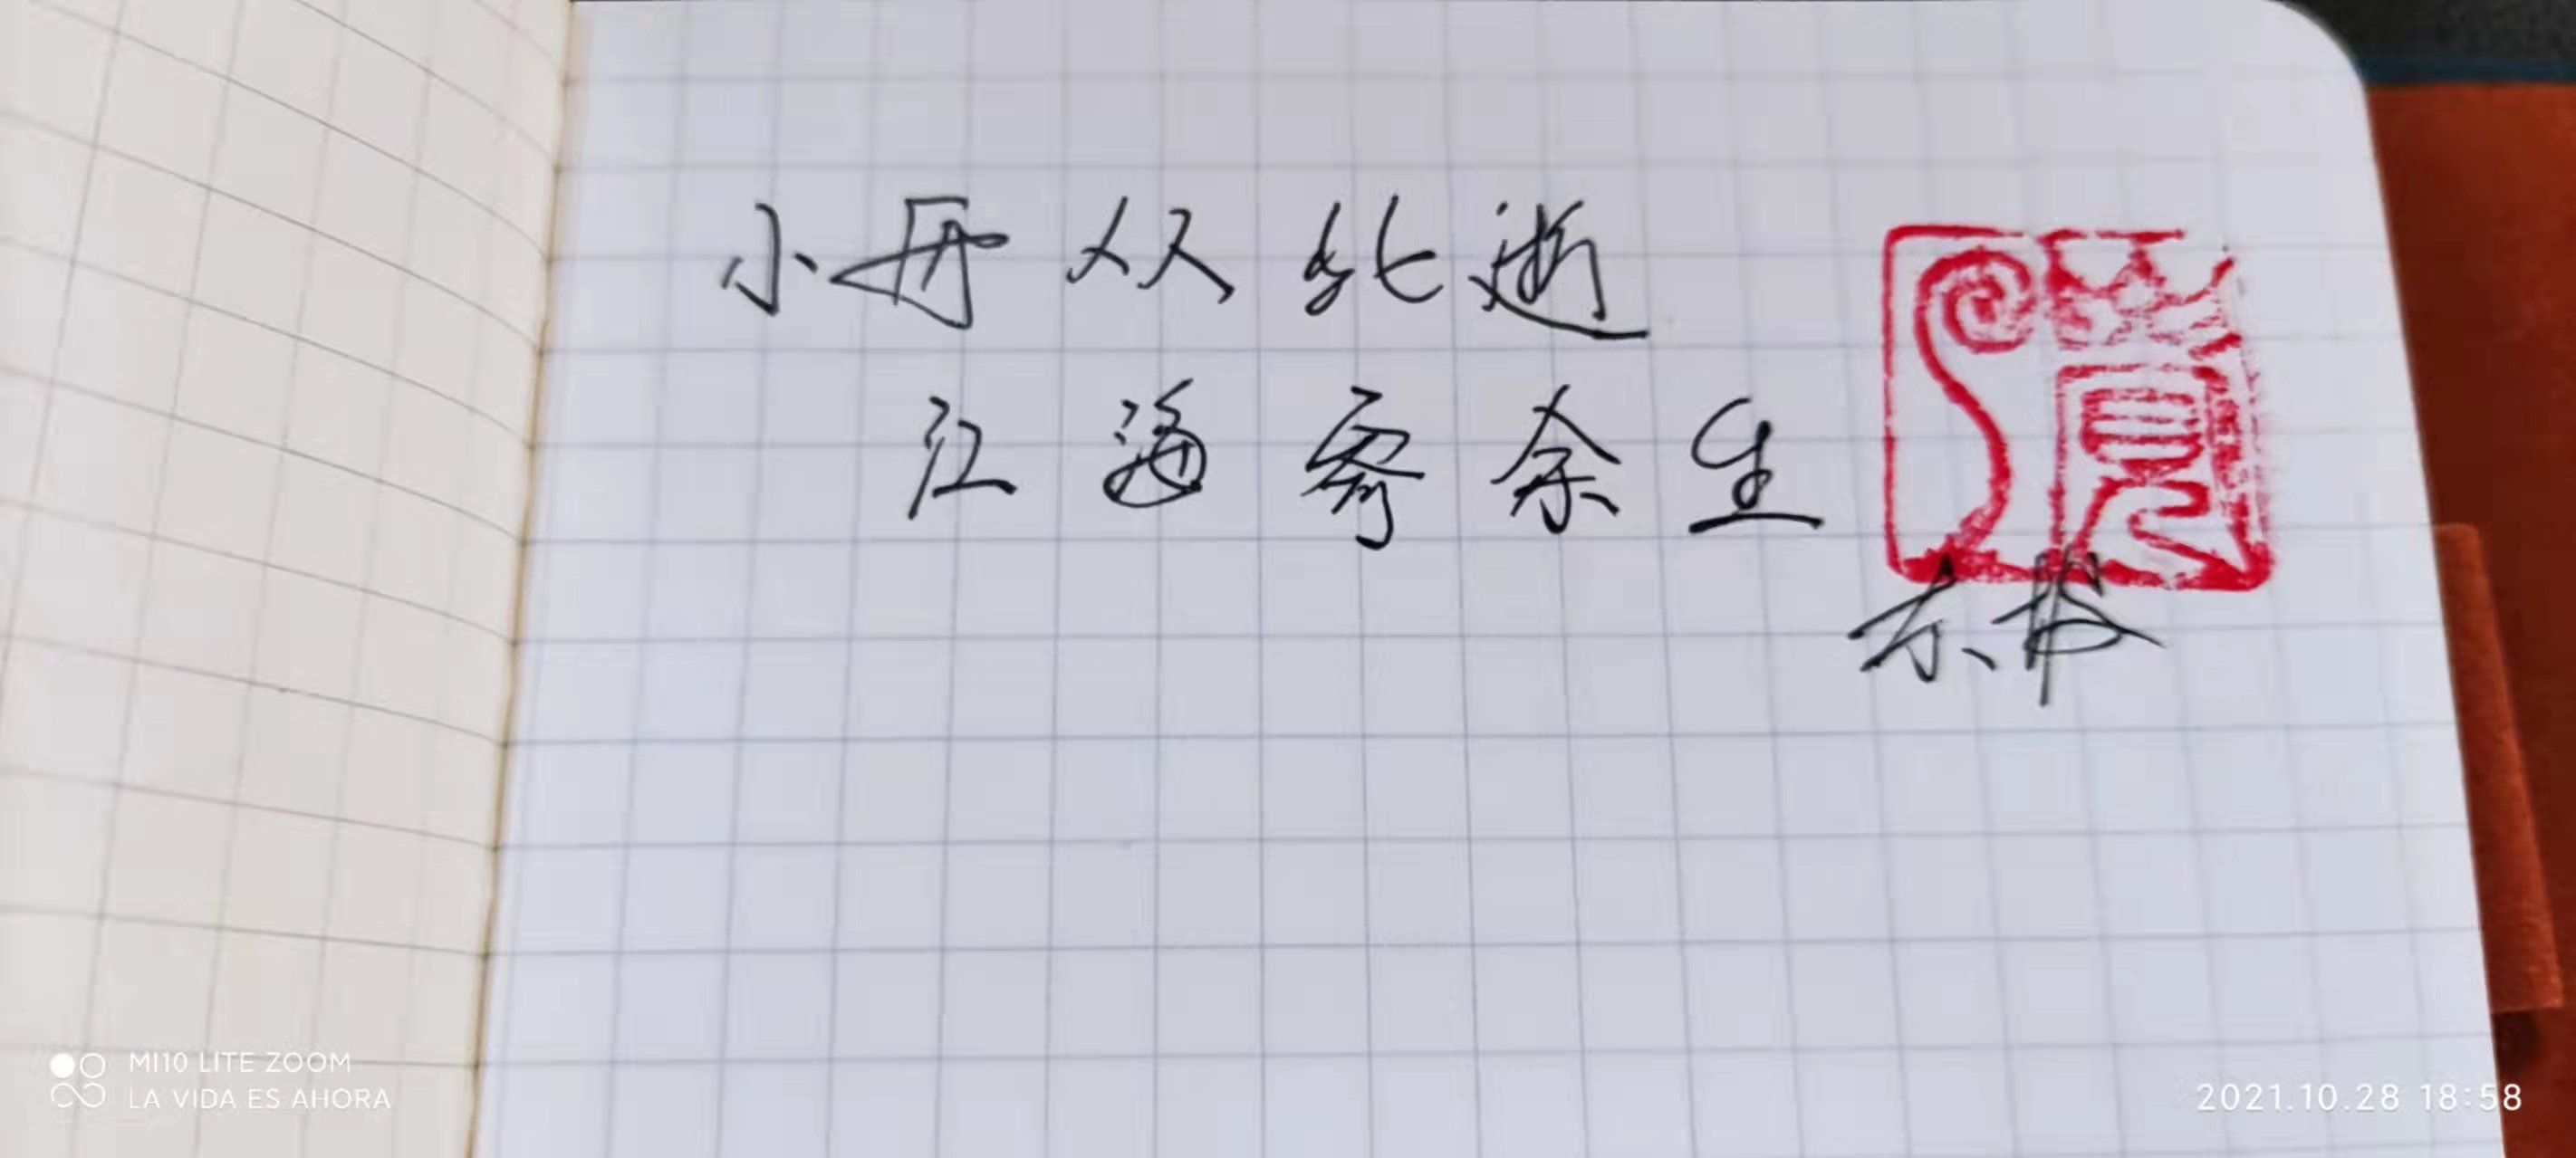 小舟从此逝
江海寄余生
东坡
MI10 LITE ZOOM
LA VIDA ES AHORA
2021.10.28 18:58